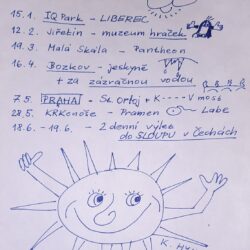 15.1. IQ Park - LIBEREC
12.2. Jiřetín - muzeum hraček
19.3. Malá Skála - Pantheon
16.4. Bozkov - jeskyně
+ za zázračnou vodou
7.5. PRAHA - St. Orloj + K----V most
28.5. KRKonoše - Pramen Labe
18.6. - 19.6. - 2 denní výlet
do SLOUPU v Čechách
K.